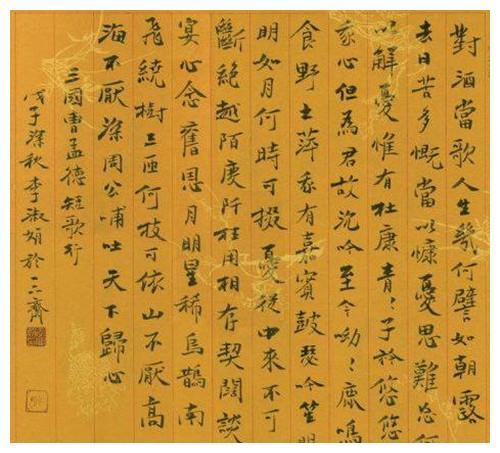 對酒當歌人生幾何譬如朝露
去日苦多慨當以慷憂思難忘何
以解憂惟有杜康青々子衿悠悠
我心但為君故沉吟至今呦々鹿鳴
食野之苹我有嘉賓鼓瑟吹笙明
明如月何時可掇憂從中來不可
斷絕越陌度阡枉用相存契闊談
宴心念舊恩月明星稀烏鵲南
飛繞樹三匝何枝可依山不厭高
海不厭深周公哺吐天下歸心
三國曹孟德短歌行
戊子深秋李淑娟於齋